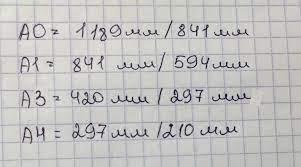 А0 = 1189 мм / 841 мм
А1 = 841 мм / 594 мм
А3 = 420 мм / 297 мм
А4 = 297 мм / 210 мм